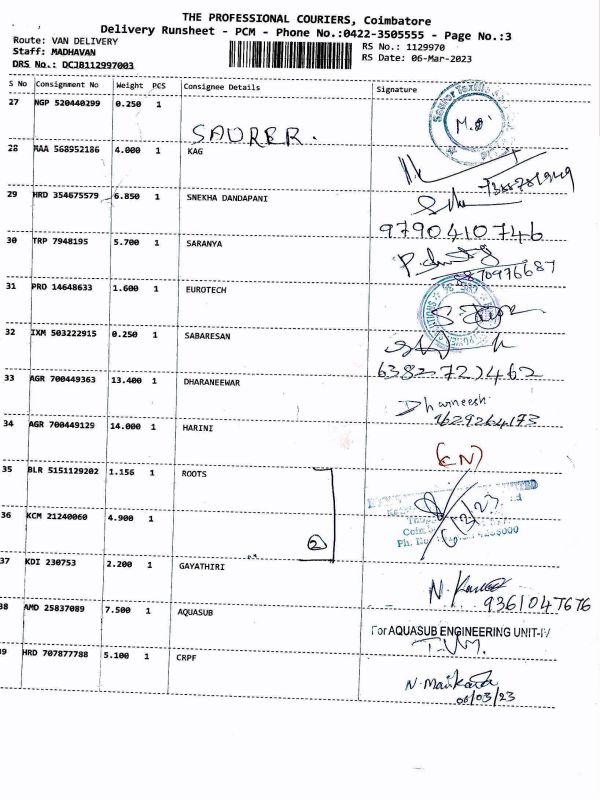 THE PROFESSIONAL COURIERS, Coimbatore
Delivery Runsheet - PCM - Phone No.:0422-3505555 - Page No.:3
Route: VAN DELIVERY RS No.: 1129970
Staff: MADHAVAN RS Date: 06-Mar-2023
DRS No.: DCJB112997003
S No Consignment No Weight PCS Consignee Details Signature
27 NGP 520440299 0.250 1
SAURER. M.D
28 MAA 568952186 4.000 1 KAG
29 HRD 354675579 6.850 1 SNEKHA DANDAPANI
9790410746
30 TRP 7948195 5.700 1 SARANYA
31 PRO 14648633 1.600 1 EUROTECH
32 IXM 503222915 0.250 1 SABARESAN
33 AGR 700449363 13.400 1 DHARANEEWAR
Dharneesh
9629264173
34 AGR 700449129 14.000 1 HARINI
(CN)
35 BLR 5151129202 1.156 1 ROOTS
LIMITED
36 KCM 21240060 4.900 1
2
37 KDI 230753 2.200 1 GAYATHIRI
9361047676
38 AMD 25837089 7.500 1 AQUASUB
For AQUASUB ENGINEERING UNIT-IV
39 HRD 707877788 5.100 1 CRPF
06/03/23